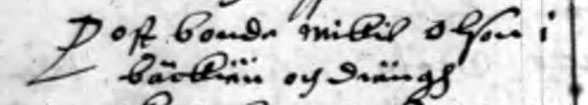 Post bonde Mikil Olson i
bäckiän och drängh